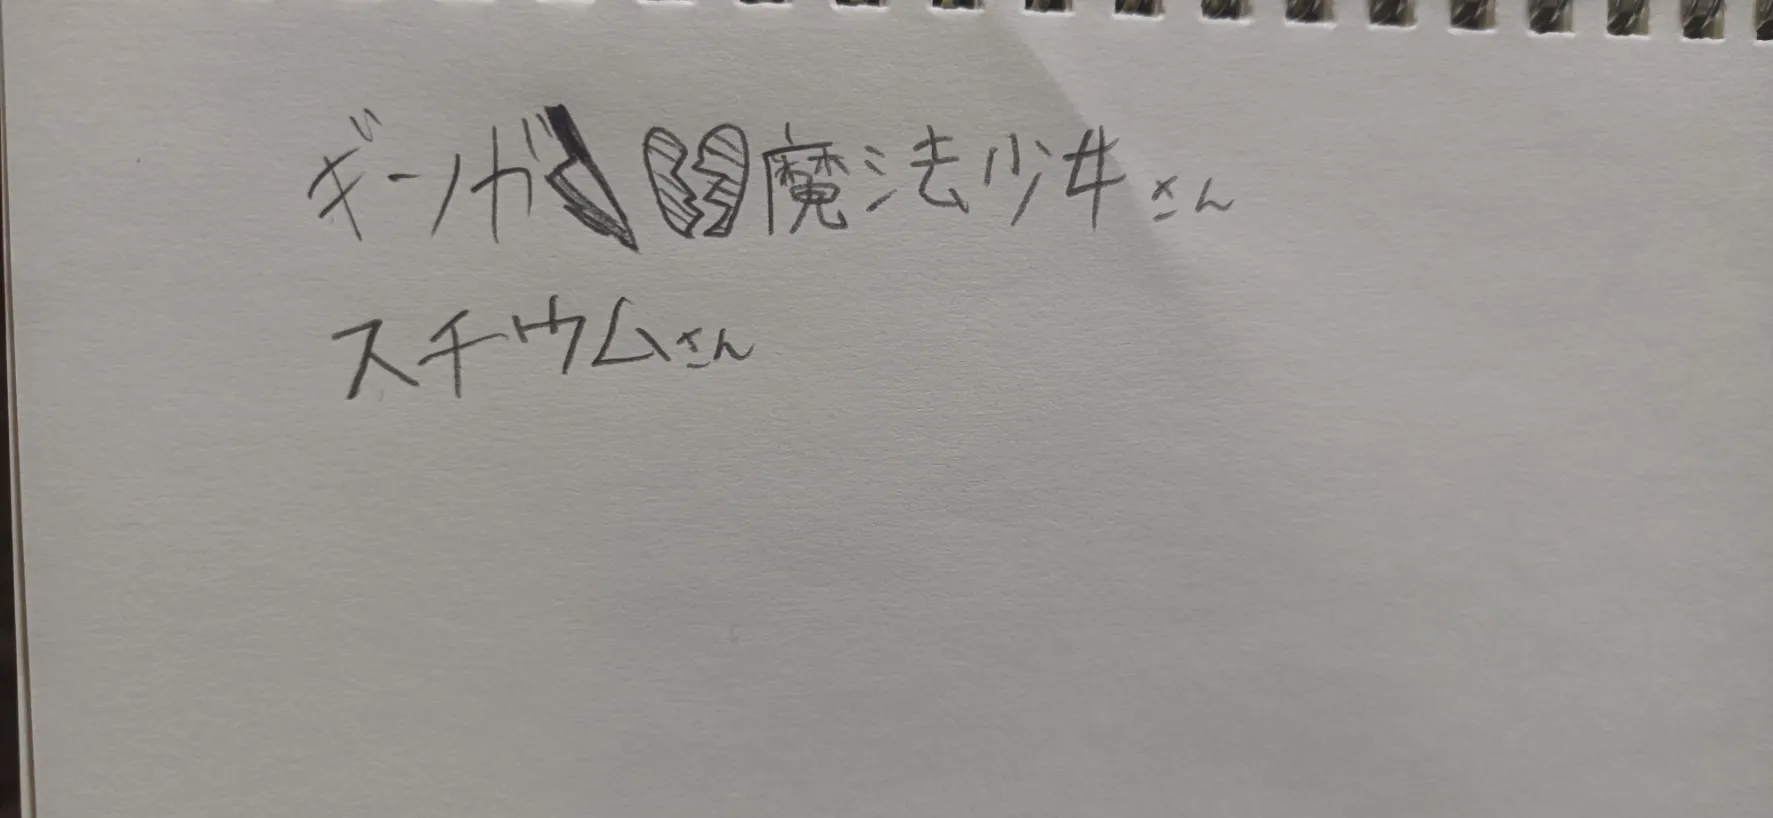 ギーガ⚡💔魔法少女さん
スチウムさん